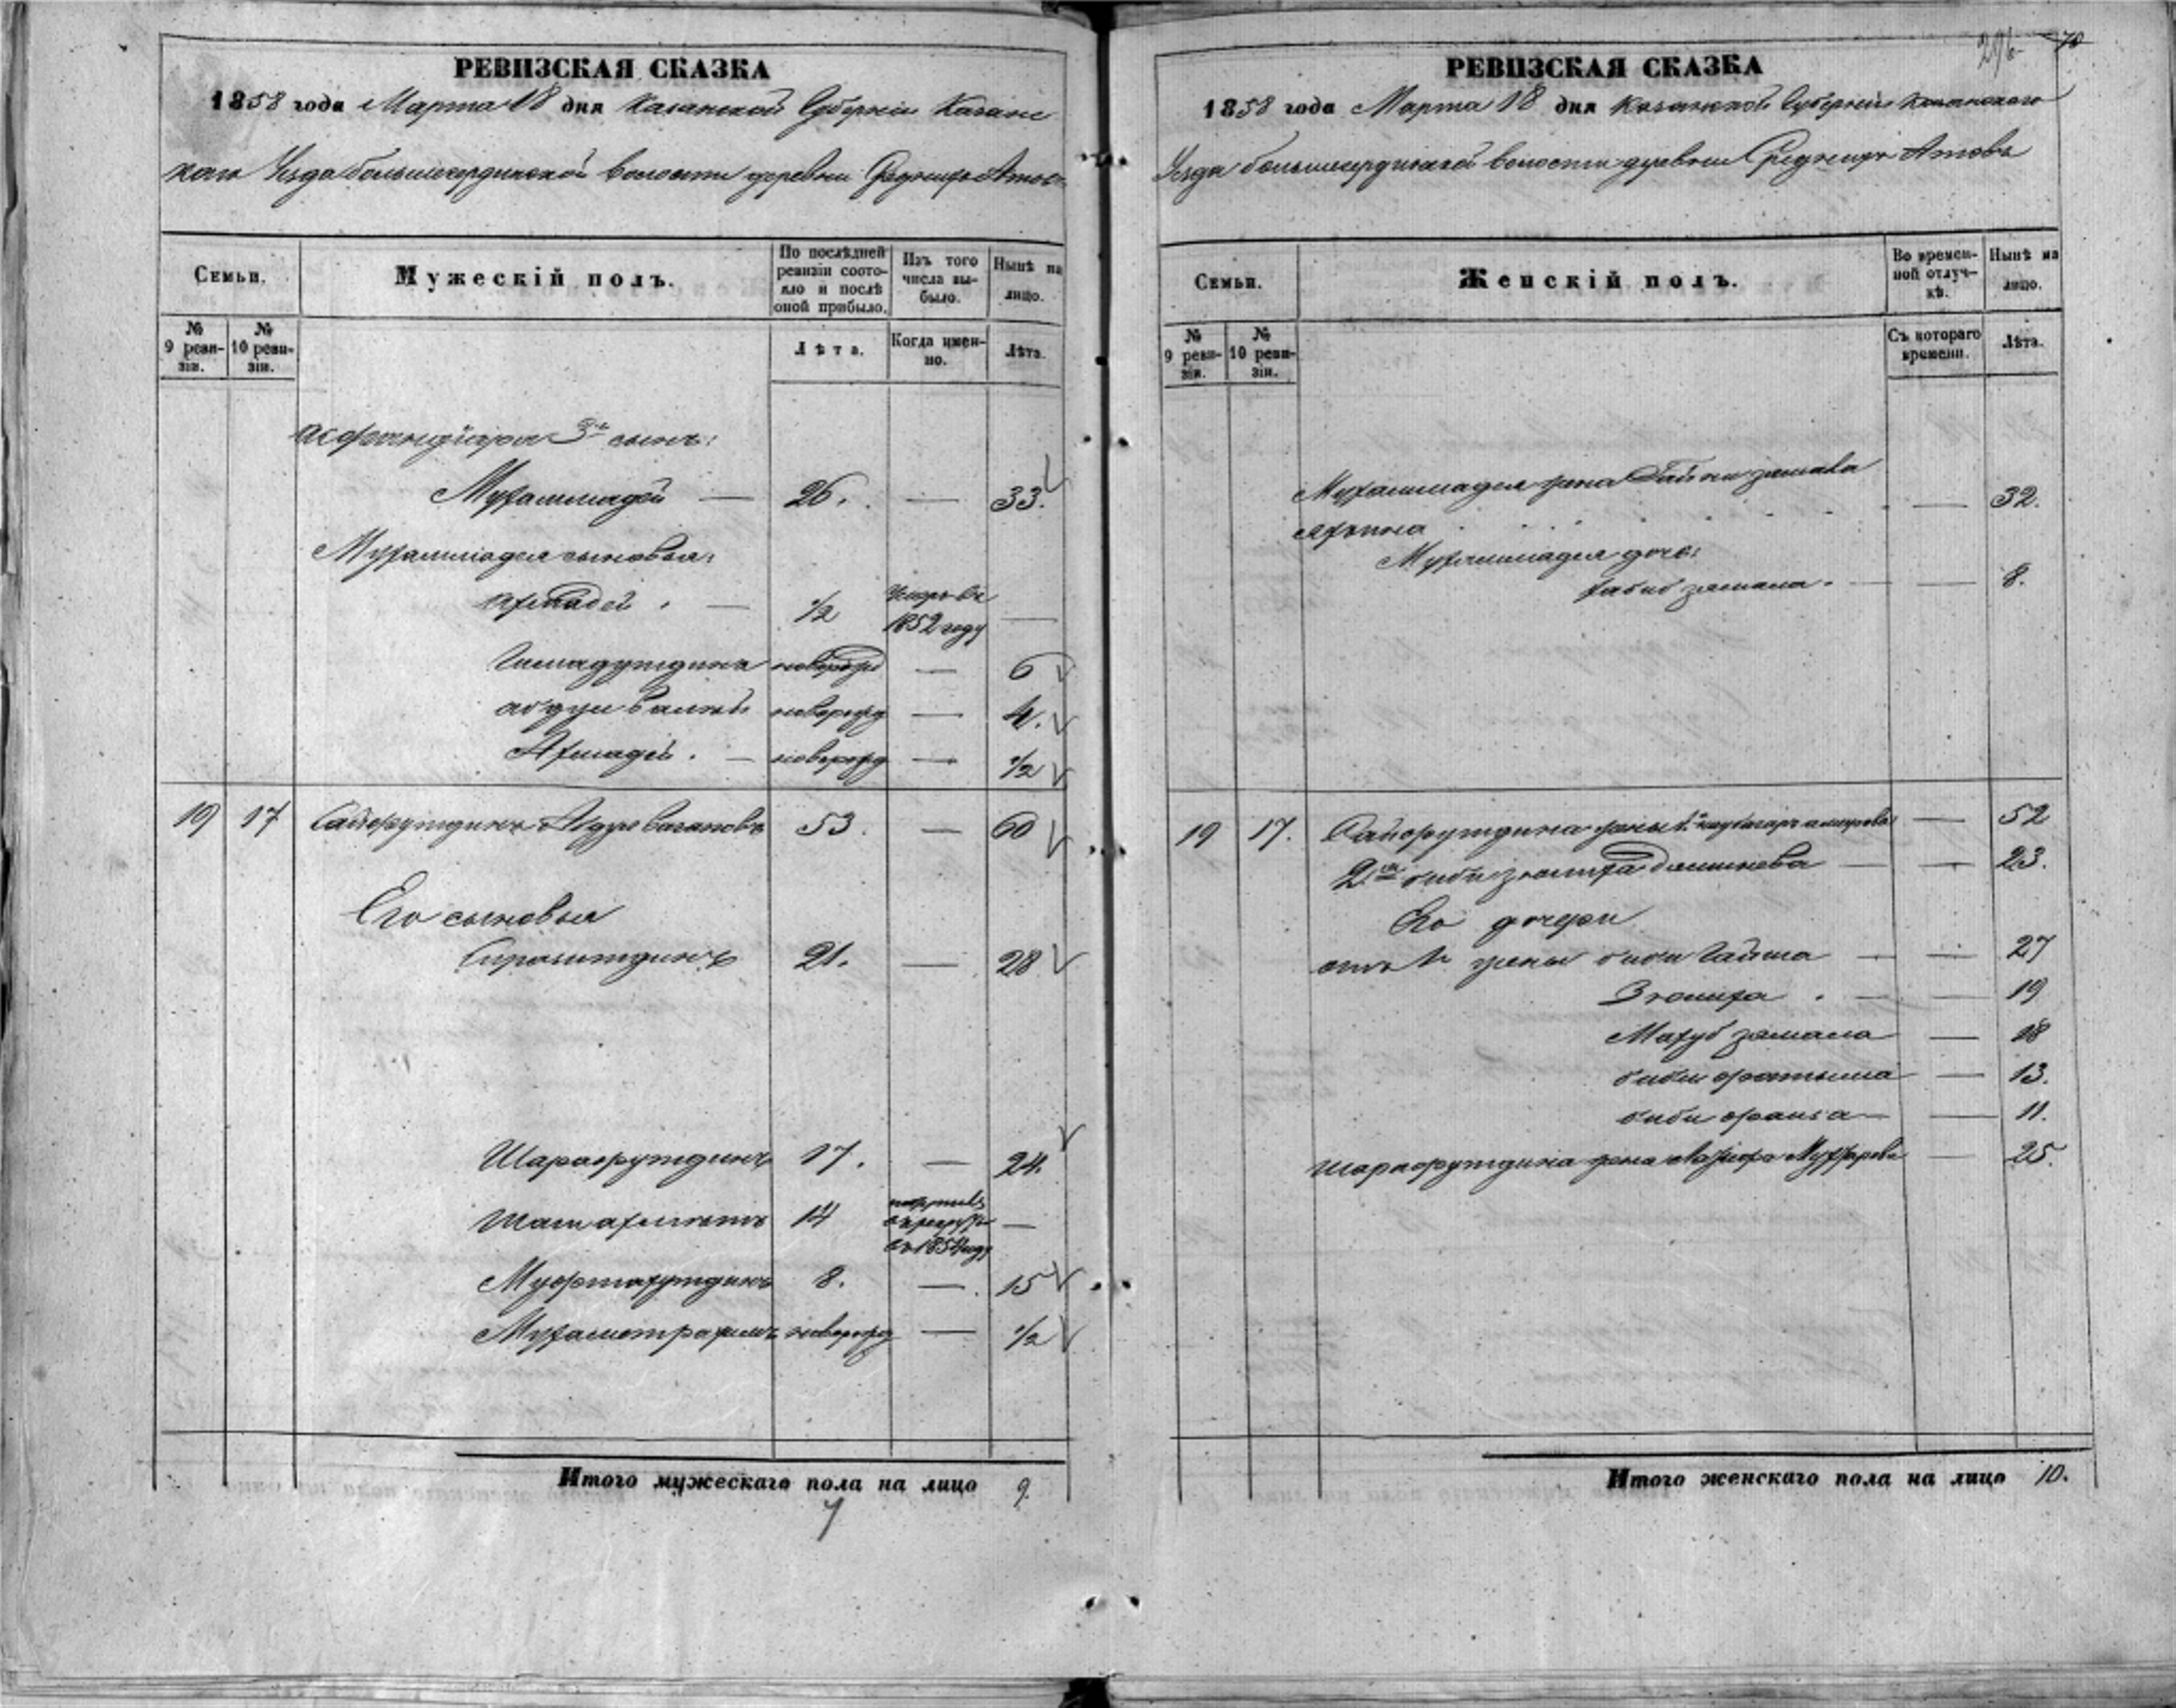 РЕВИЗСКАЯ СКАЗКА
1858 года Марта 18 дня Казанской Губернии Казанс
каго Уезда большесердинской волости деревни Средних Атовъ
Семьи.
Мужескій полъ.
По послѣдней ревизіи состояло и послѣ оной прибыло.
Изъ того числа выбыло.
Нынѣ на лицо.
№ 9 ревизіи.
№ 10 ревизіи.
Лѣта.
Когда именно.
Лѣта.
3й сынъ:
Мухаммадей — 26. — 33.
Мухаммадея сыновья:
Ахмадей . — 1/2 Умеръ въ 1852 году —
новорожд — 6
новорожд — 4.
Ахмадей . — новорожд — 1/2
19 17 Сайфутдинъ Абдулвагаповъ 53. — 60
Его сыновья
Сиразитдинъ 21. — 28
Шарафутдинъ 17. — 24.
Шагиахметъ 14 въ рекруты въ 1854 году —
Мифтахутдинъ 8. — 15
Мухаметрахимъ новорожд — 1/2
Итого мужескаго пола на лицо 9.
РЕВИЗСКАЯ СКАЗКА
1858 года Марта 18 дня Казанской Губернии Казанского
Уезда большесердинской волости деревни Средних Атовъ
Семьи.
Женскій полъ.
Во временной отлучкѣ.
Нынѣ на лицо.
№ 9 ревизіи.
№ 10 ревизіи.
Съ котораго времени.
Лѣта.
Мухаммадея жена
— 32.
Мухаммадея дочь:
Хабибзямала . — — 8.
19 17. Сайфутдина жены 1. — 52
2ая биби Зюлиха — — 23.
Его дочери
отъ 1й жены биби Гайша — — 27
Зюлиха . — — 19
Махубзямала — 18
биби фатыма — 13.
биби фаиза — — 11.
Шарафутдина жена — 25.
Итого женскаго пола на лицо 10.